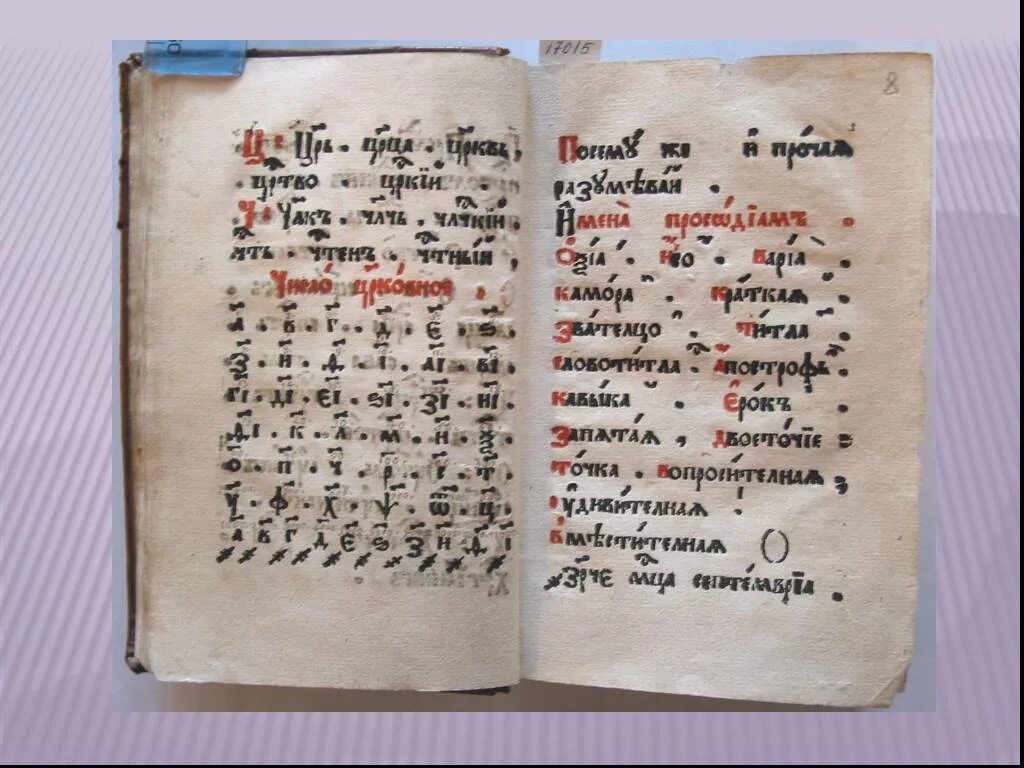 17015
8
Ц҃: Цр҃ь . цр҃ца . цр҃квь ,
. цр҃тво . цр҃кїй .
Ч: Чл҃къ . чл҃чь . чл҃чкїй .
чт҃ь . чт҃енъ . чт҃ный ,
Число́ цр҃ко́вное .
а . в . г . д . є . ѕ .
з . и . ѳ . і . аі . ві .
гі . ді . єі . ѕі . зі . иі .
ѳі . к . л . м . н . ѯ .
о . п . ч . р . с . т .
у . ф . х . ѱ . ѿ . ц .
а в г д є ѕ з и ѳ і
Посемꙋ́ же и҆ про́чаѧ
разꙋмѣва́й .
И҆мена̀ просѡді́амъ .
О҆ѯі́а . и҆со . варі́а .
камо́ра . кра́ткаѧ .
Зва́телцо . ти́тла .
словоти́тла . а҆построфъ .
кавы́ка . є҆ро́къ .
Запѧта́ѧ , двосто́чїе :
то́чка . вопроси́телнаѧ ;
ᲂу҆диви́телнаѧ !
вмѣсти́телнаѧ ()
Зр҃че мц҃а септе́мврїа .